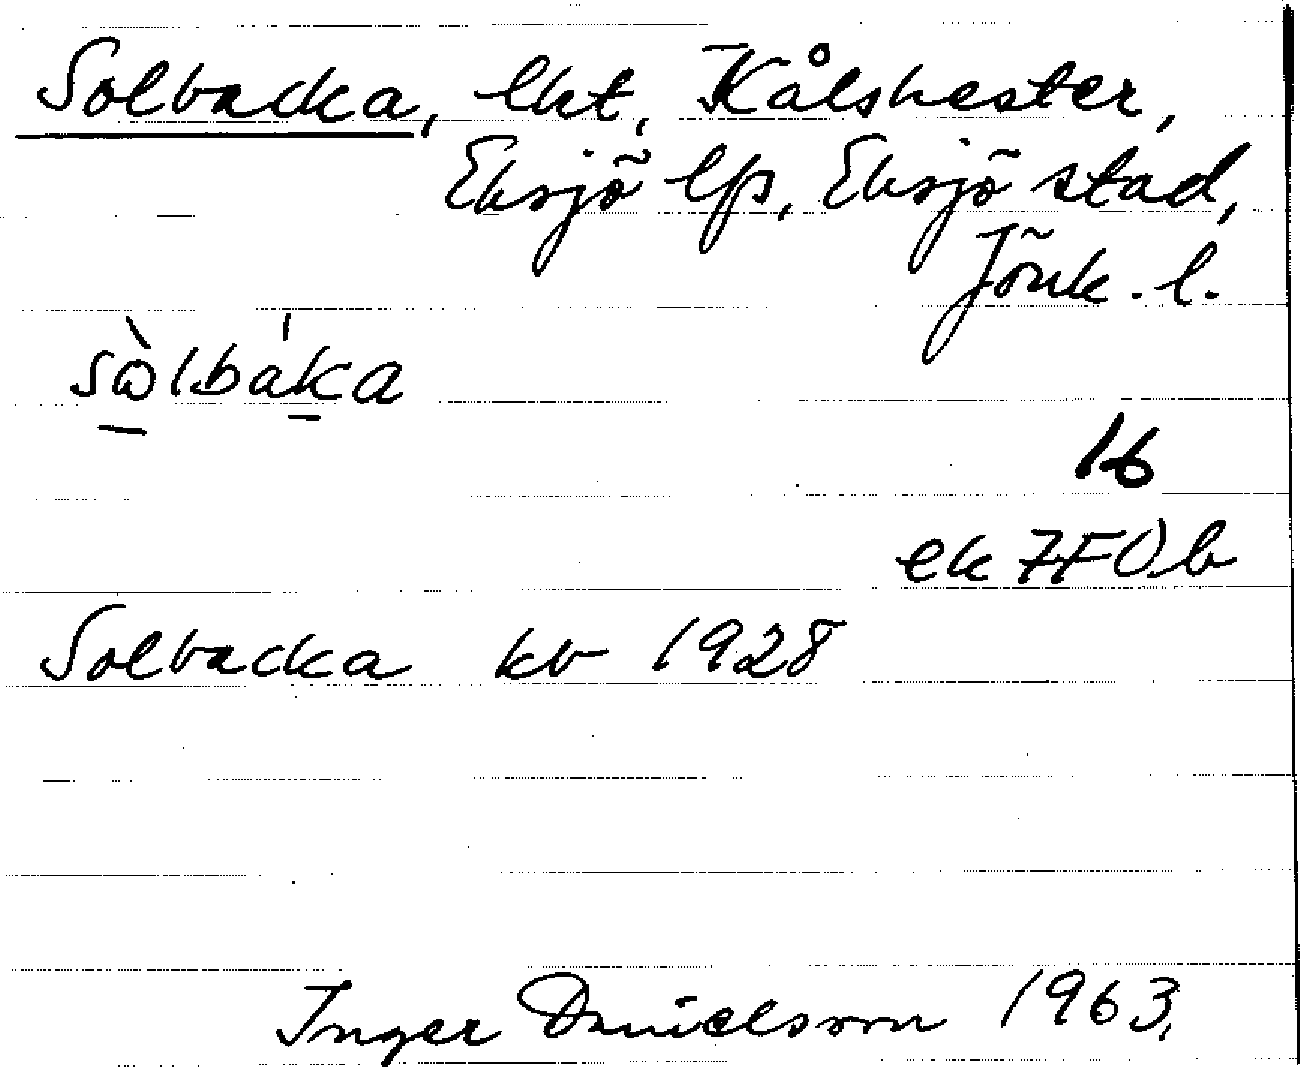 Solbacka, lht, Kålshester,
Eksjö lfs, Eksjö stad,
Jönk. l.
sòlbáka
16
ek 7F0b
Solbacka kb 1928
Inger Danielsson 1963.